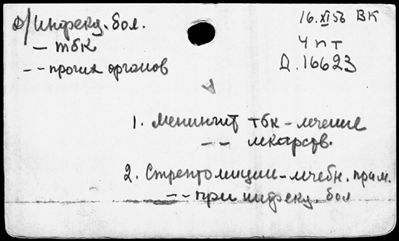 д/инфекц. бол.
— тбк
— — прочих органов
16.XI 56 ВК
4 п т
Д. 16623
1. Менингит тбк - лечение
— — лекарств.
2. Стрептомицин - лечебн. прим.
— — при инфекц. бол